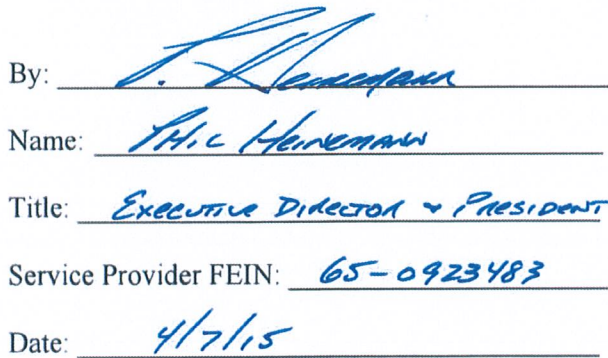 By: P. Heinemann
Name: PHIL HEINEMANN
Title: EXECUTIVE DIRECTOR & PRESIDENT
Service Provider FEIN: 65-0923483
Date: 4/7/15